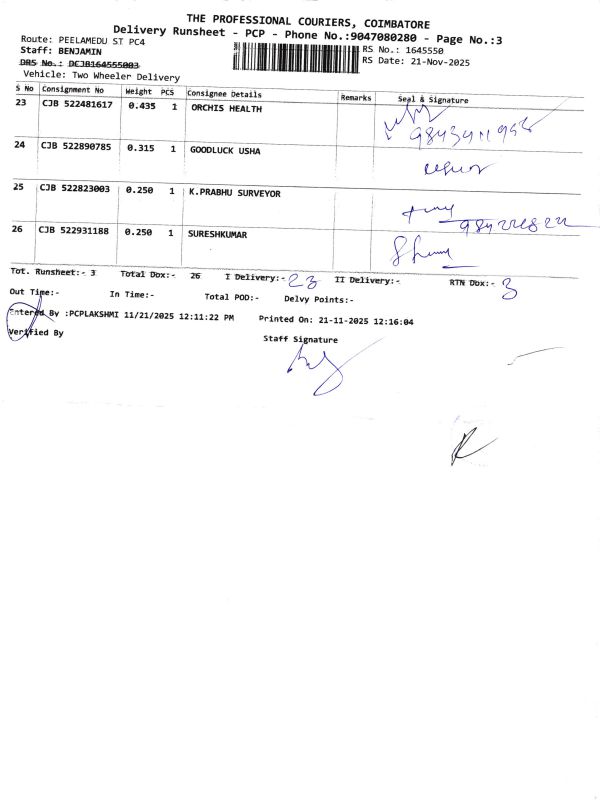 THE PROFESSIONAL COURIERS, COIMBATORE
Delivery Runsheet - PCP - Phone No.:9047080280 - Page No.:3
Route: PEELAMEDU ST PC4
RS No.: 1645550
Staff: BENJAMIN
RS Date: 21-Nov-2025
DRS No.: DCJB164555003
Vehicle: Two Wheeler Delivery
S No Consignment No Weight PCS Consignee Details Remarks Seal & Signature
23 CJB 522481617 0.435 1 ORCHIS HEALTH
24 CJB 522890785 0.315 1 GOODLUCK USHA
25 CJB 522823003 0.250 1 K.PRABHU SURVEYOR
26 CJB 522931188 0.250 1 SURESHKUMAR
Tot. Runsheet:- 3 Total Dox:- 26 I Delivery:- 23 II Delivery:- RTN Dox:- 3
Out Time:- In Time:- Total POD:- Delvy Points:-
Entered By :PCPLAKSHMI 11/21/2025 12:11:22 PM Printed On: 21-11-2025 12:16:04
Verified By Staff Signature